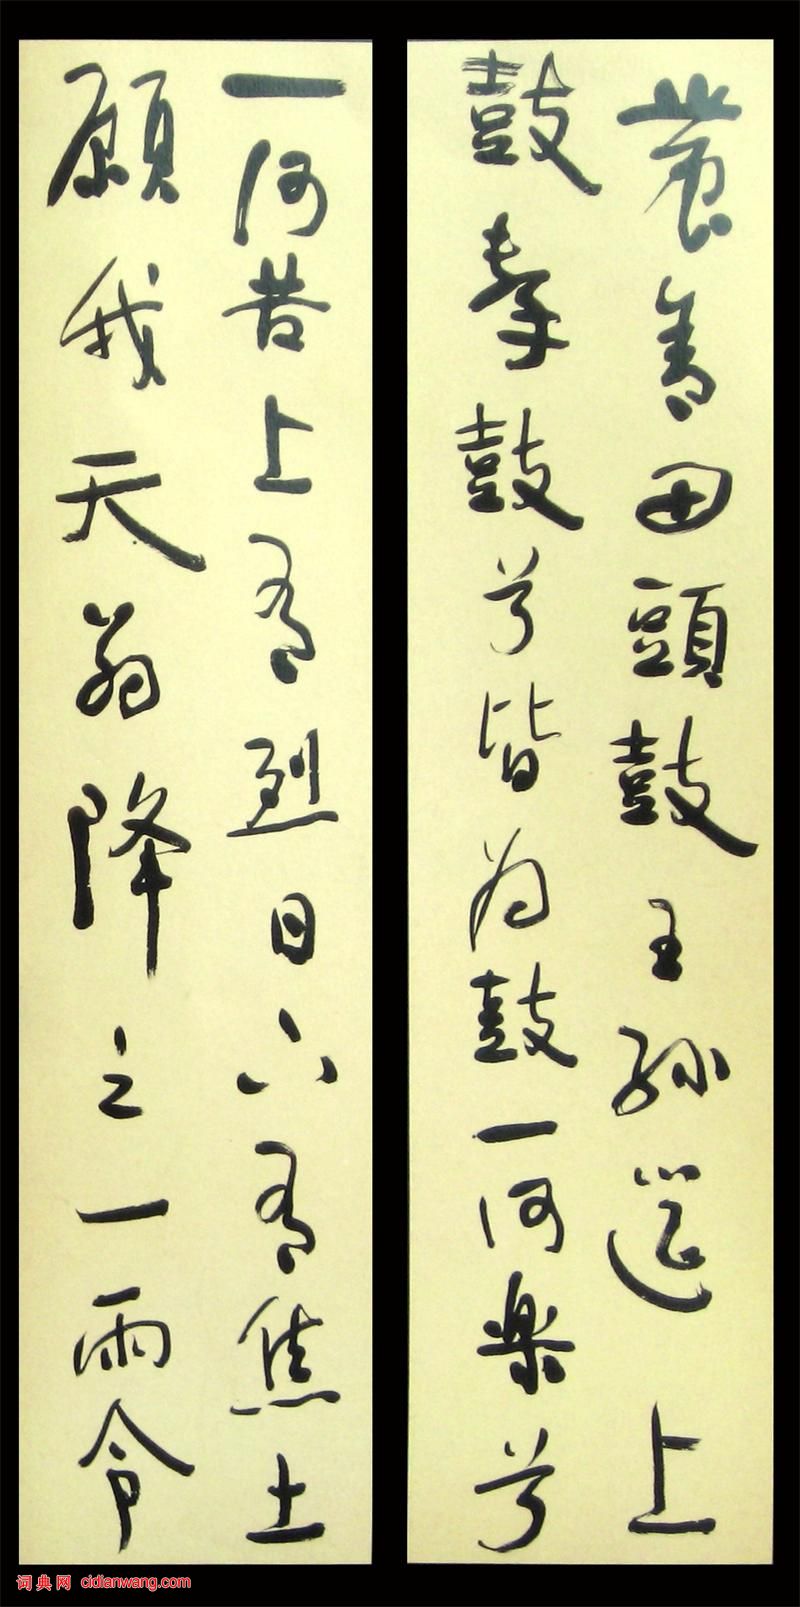 農舍田頭鼓王孫筵上
鼓擊鼓兮皆为鼓一何樂兮
一何苦上有烈日下有焦土
願我天翁降之一雨令
词典网 cidianwang.com